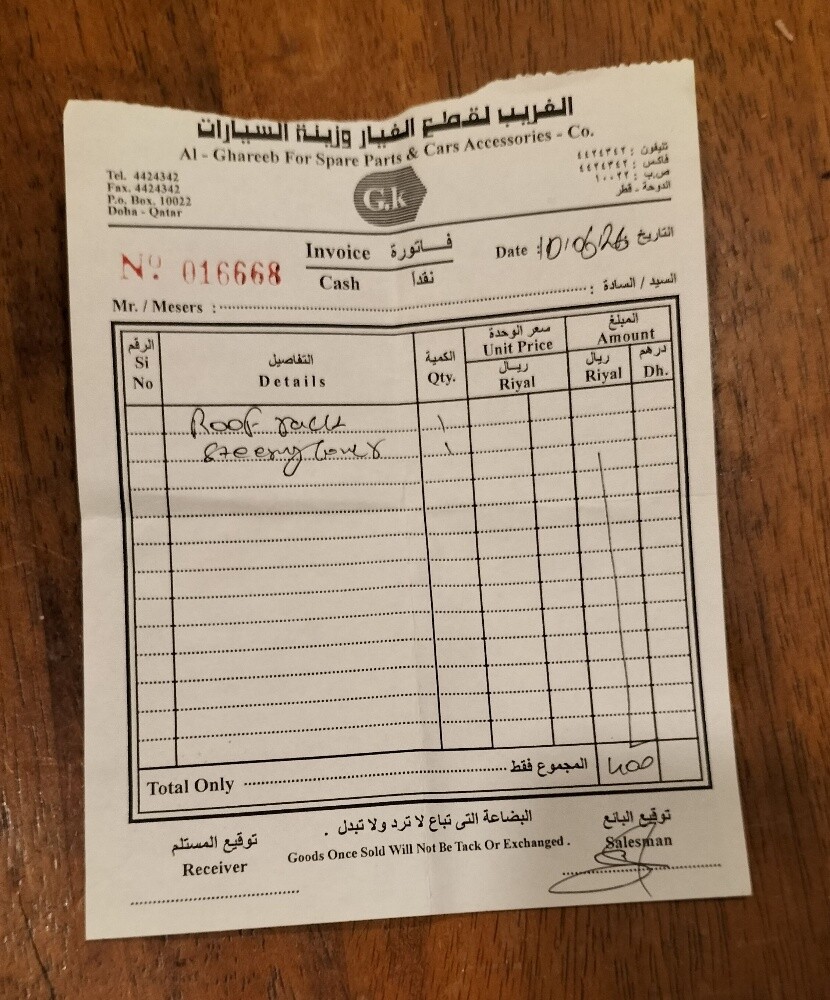 الغريب لقطع الغيار وزينة السيارات
Al - Ghareeb For Spare Parts & Cars Accessories - Co.
Tel. 4424342
Fax. 4424342
P.o. Box. 10022
Doha - Qatar
G.k
تليفون : ٤٤٢٤٣٤٢
فاكس : ٤٤٢٤٣٤٢
ص.ب : ١٠٠٢٢
الدوحة - قطر
Nº 016668
Invoice فـــاتورة
Cash نقداً
Date : 10/06/26 التاريخ
Mr. / Mesers : السيد / السادة :
الرقم Si No
التفاصيل Details
الكمية Qty.
سعر الوحدة Unit Price
ريـــال Riyal
المبلغ Amount
ريال Riyal
درهم Dh.
Roof rack 1
1
Total Only المجموع فقط 400
توقيع المستلم
Receiver
البضاعة التى تباع لا ترد ولا تبدل .
Goods Once Sold Will Not Be Tack Or Exchanged .
توقيع البائع
Salesman